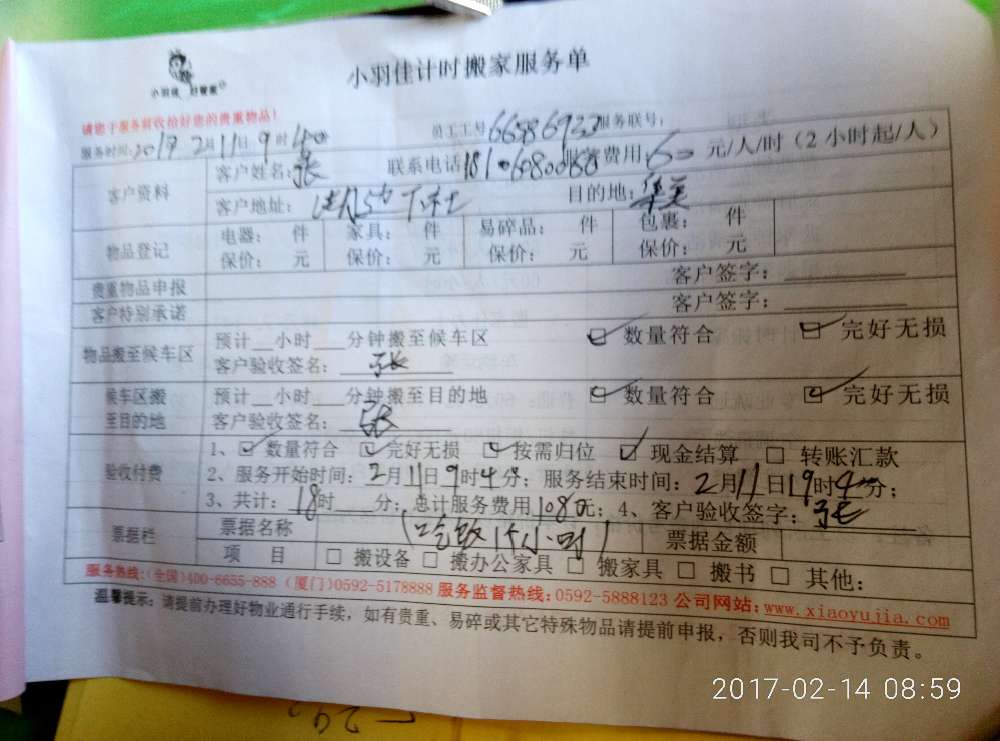 小羽佳计时搬家服务单
小羽佳 好管家
请您于服务前收拾好您的贵重物品！
员工工号 服务联号：
服务时间：2017 2月11日9时40
客户资料 客户姓名：张 联系电话 费用：60 元/人/时（2小时起/人）
客户地址： 下社 目的地：集美
物品登记 电器： 件 家具： 件 易碎品： 件 包裹： 件
保价： 元 保价： 元 保价： 元 保价： 元
贵重物品申报 客户签字：
客户特别承诺 客户签字：
物品搬至候车区 预计__小时___分钟搬至候车区 ☑ 数量符合 ☑ 完好无损
客户验收签名：张
候车区搬至目的地 预计__小时___分钟搬至目的地 ☑ 数量符合 ☑ 完好无损
客户验收签名：张
验收付费 1、☑ 数量符合 ☑ 完好无损 ☑ 按需归位 ☑ 现金结算 □ 转账汇款
2、服务开始时间：2月11日9时4分；服务结束时间：2月11日19时4分；
3、共计：18时___分；总计服务费用1080元；4、客户验收签字：张
票据栏 票据名称 小时） 票据金额
项 目 □ 搬设备 □ 搬办公家具 □ 搬家具 □ 搬书 □ 其他：
服务热线：(全国)400-6655-888 (厦门)0592-5178888 服务监督热线：0592-5888123 公司网站：www.xiaoyujia.com
温馨提示：请提前办理好物业通行手续，如有贵重、易碎或其它特殊物品请提前申报，否则我司不予负责。
2017-02-14 08:59